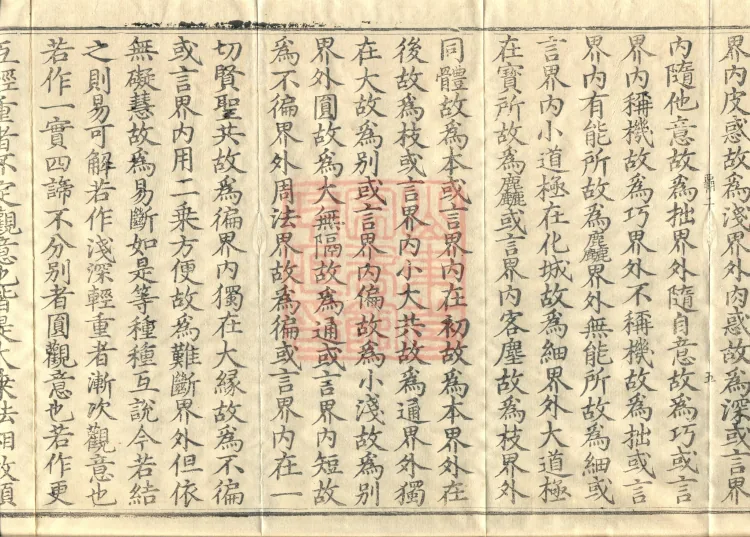 界內皮惑故爲淺界外肉惑故爲深或言界
內隨他意故爲拙界外隨自意故爲巧或言
界內稱機故爲巧界外不稱機故爲拙或言
五
界內有能所故爲麤界外無能所故爲細或
言界內小道極在化城故爲細界外大道極
在寳所故爲麤或言界內客塵故爲枝界外
同體故爲本或言界內在初故爲本界外在
後故爲枝或言界內小大共故爲通界外獨
在大故爲别或言界內偏故爲小淺故爲别
界外圓故爲大無隔故爲通或言界內短故
爲不徧界外周法界故爲徧或言界內在一
切賢聖共故爲徧界內獨在大縁故爲不徧
或言界內用二乗方便故爲難斷界外但依
無礙慧故爲易斷如是等種種互說今若結
之則易可解若作淺深輕重者漸次觀意也
若作一實四諦不分别者圓觀意也若作更
互輕重者不定觀意也皆是大乗法相故須